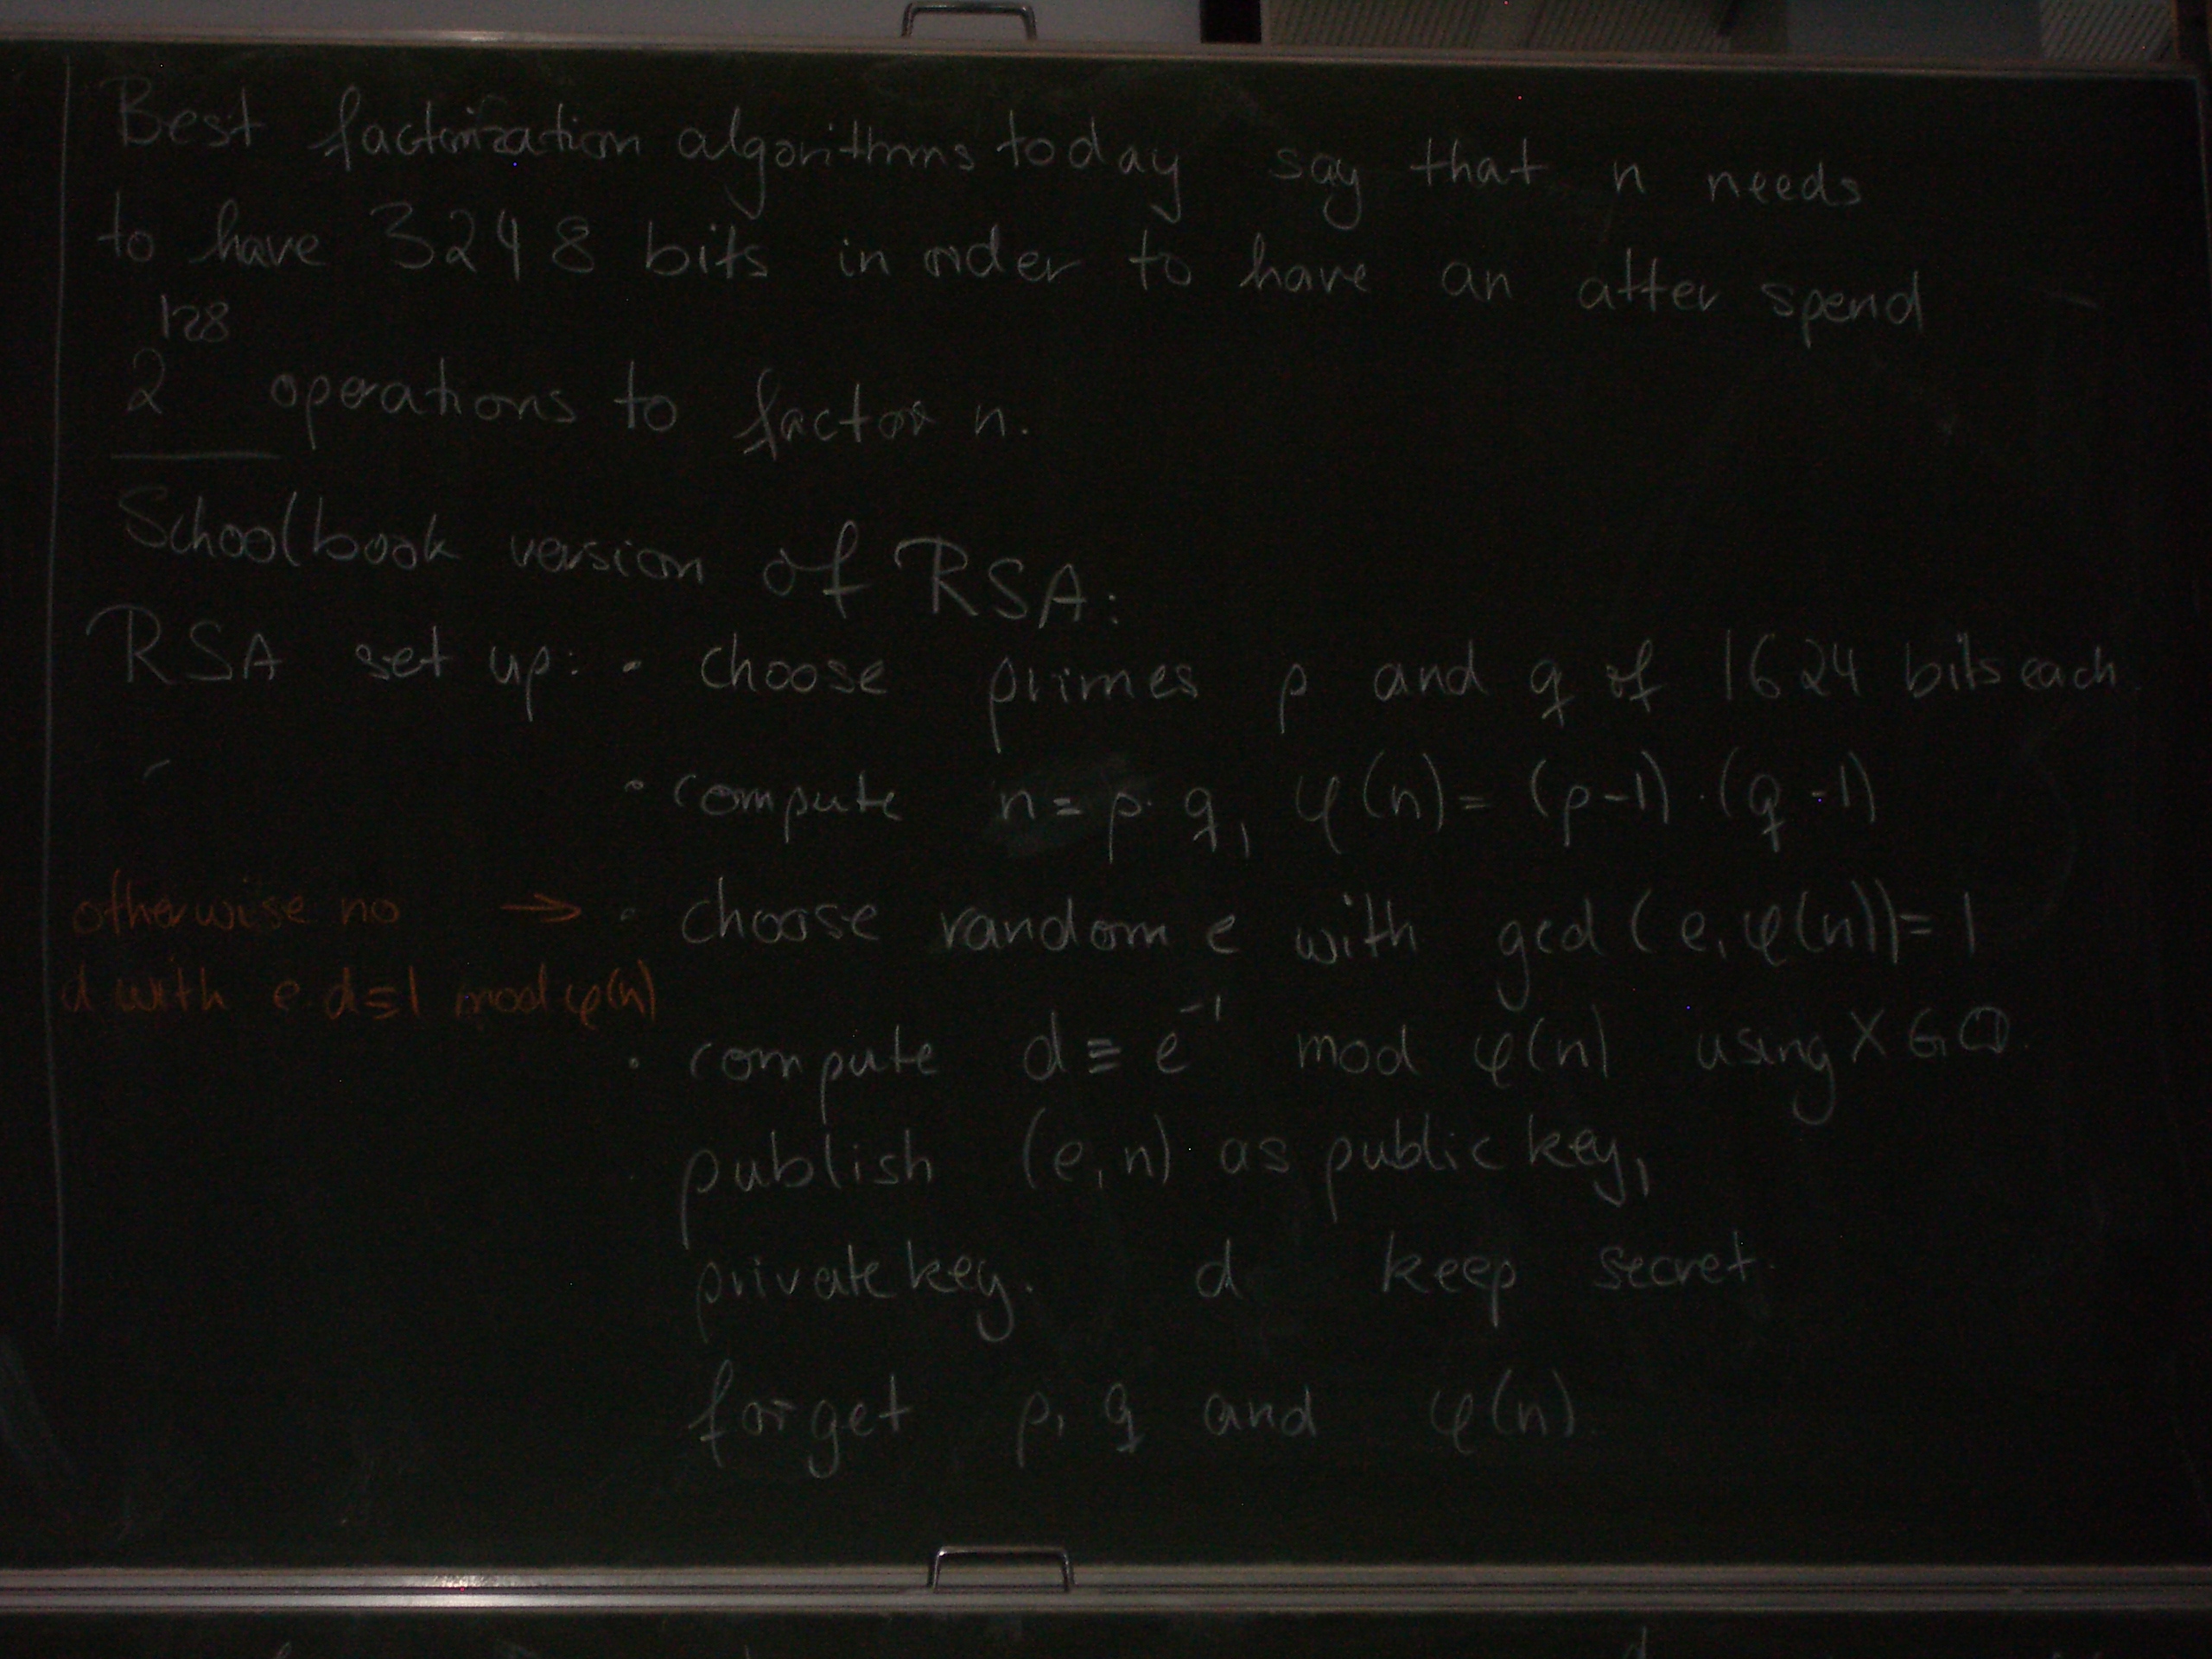 Best factorization algorithms today say that n needs
to have 3248 bits in order to have an atter spend
2^128 operations to factor n.
Schoolbook version of RSA:
RSA set up: • choose primes p and q of 1624 bits each
• compute n = p·q, φ(n) = (p-1)·(q-1)
otherwise no → • choose random e with gcd(e, φ(n)) = 1
d with e·d≡1 mod φ(n)
• compute d ≡ e^-1 mod φ(n) using XGCD
publish (e, n) as public key,
private key. d keep secret.
forget p, q and φ(n).